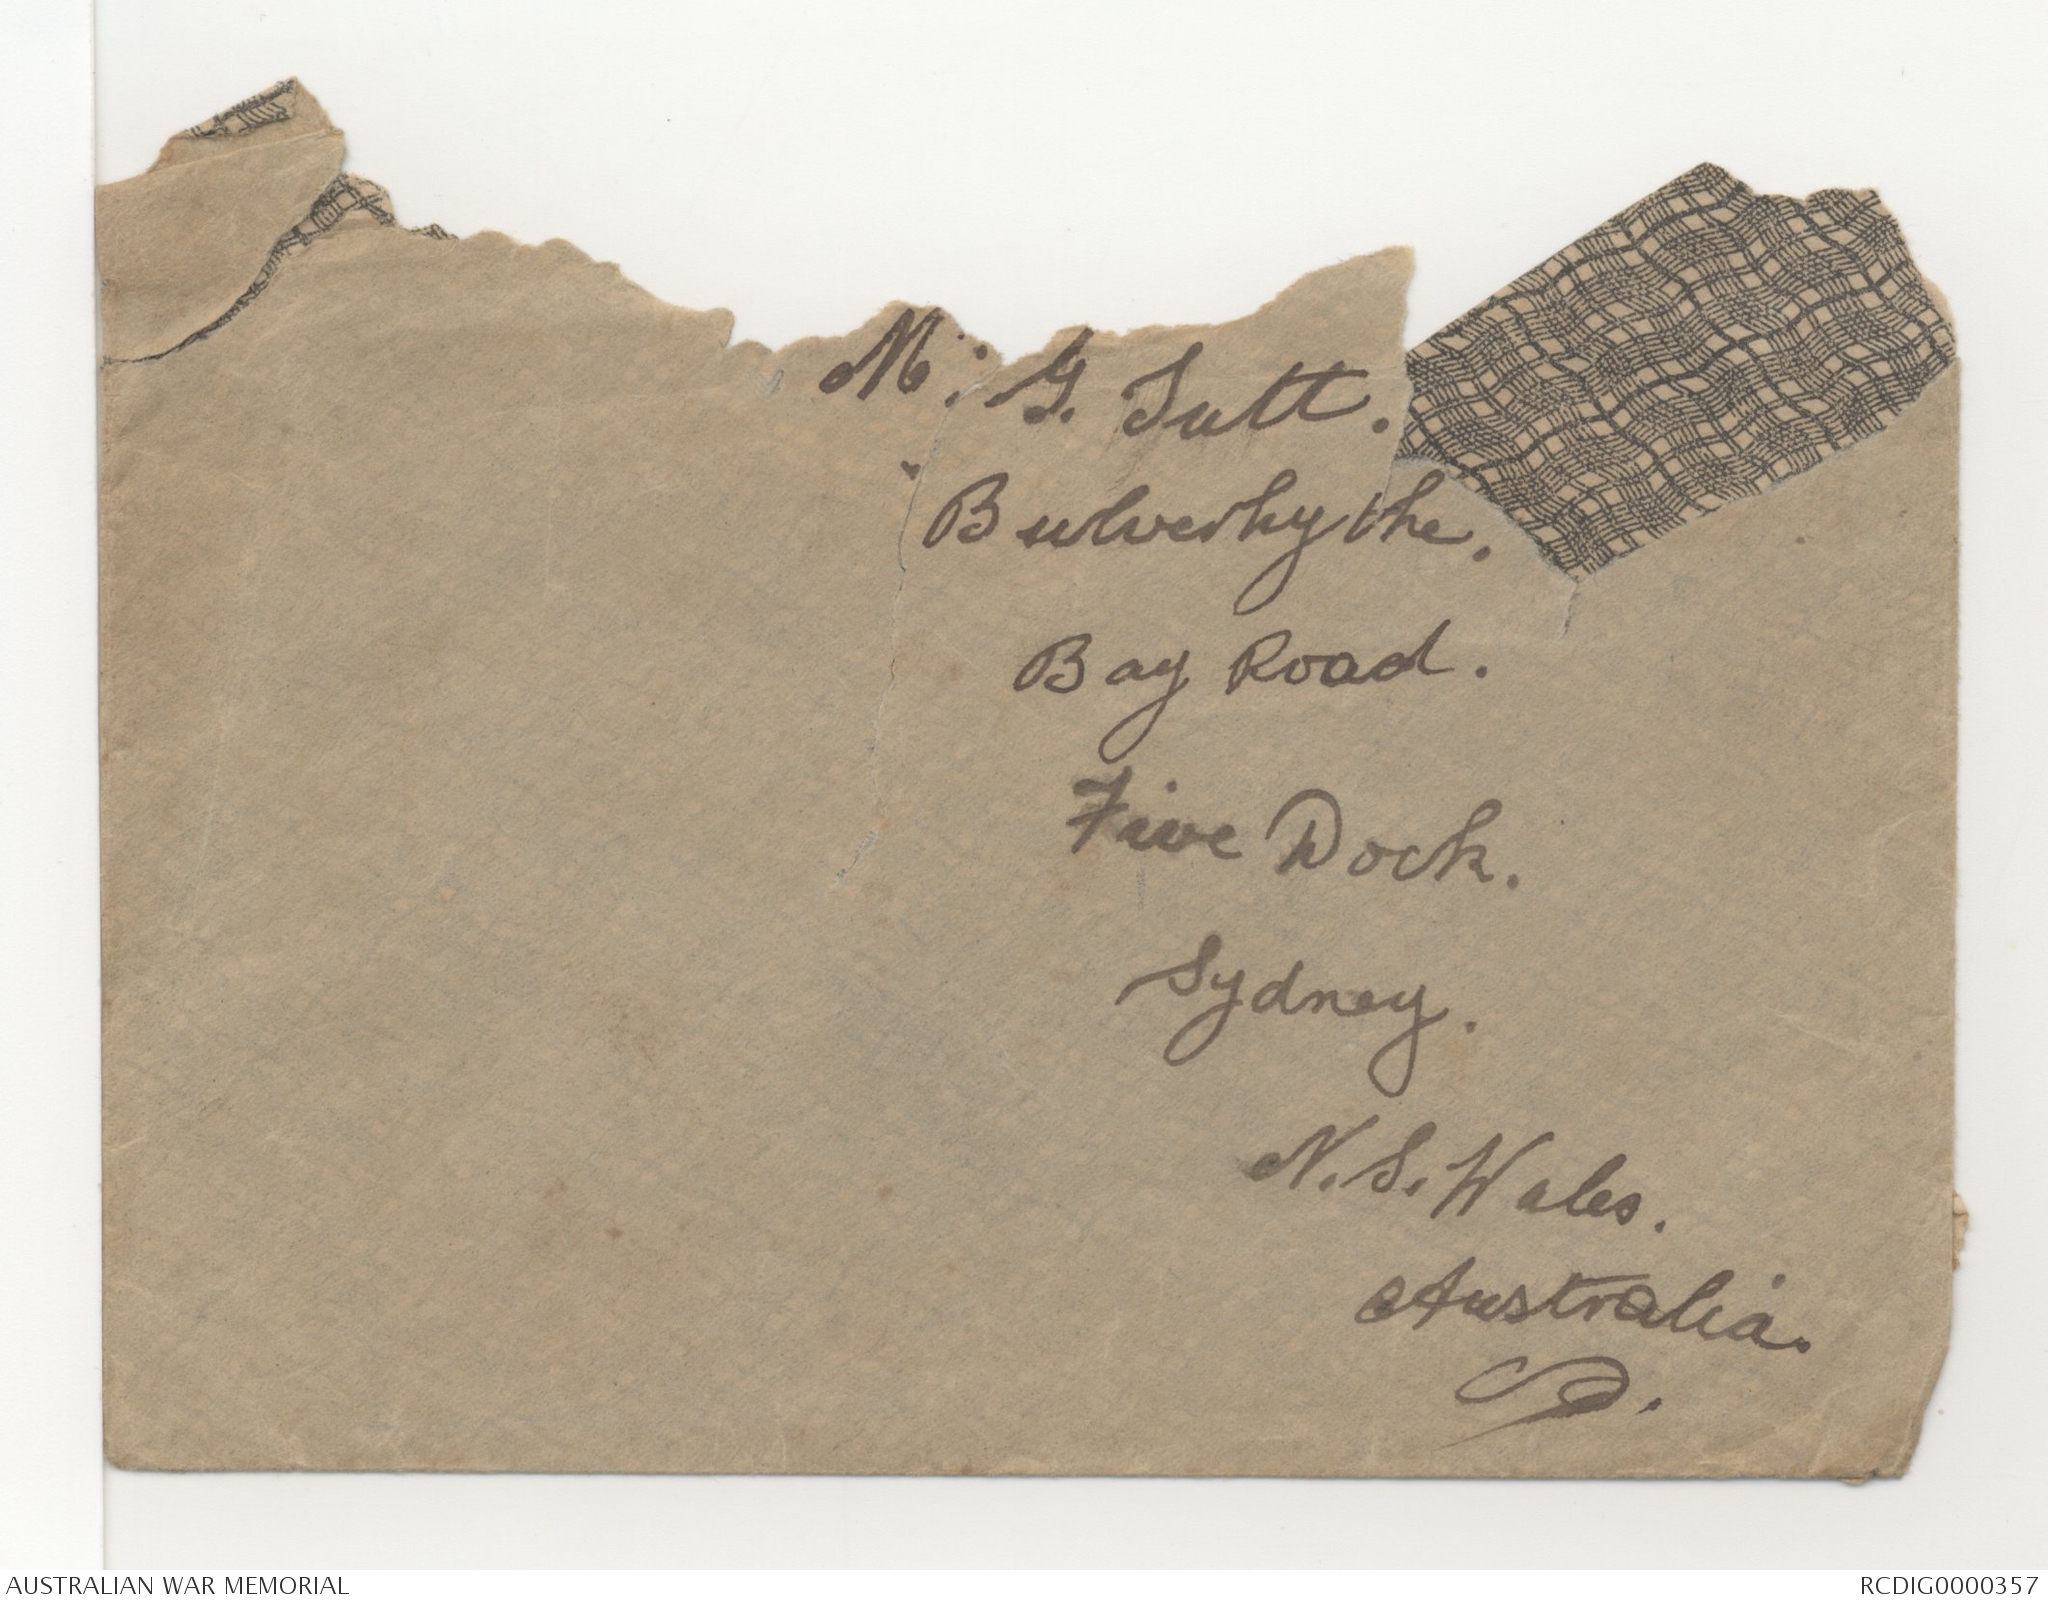 Mr. G. Tutt.
Bulverhythe.
Bay Road.
Five Dock.
Sydney.
N.S. Wales.
Australia.
AUSTRALIAN WAR MEMORIAL
RCDIG0000357